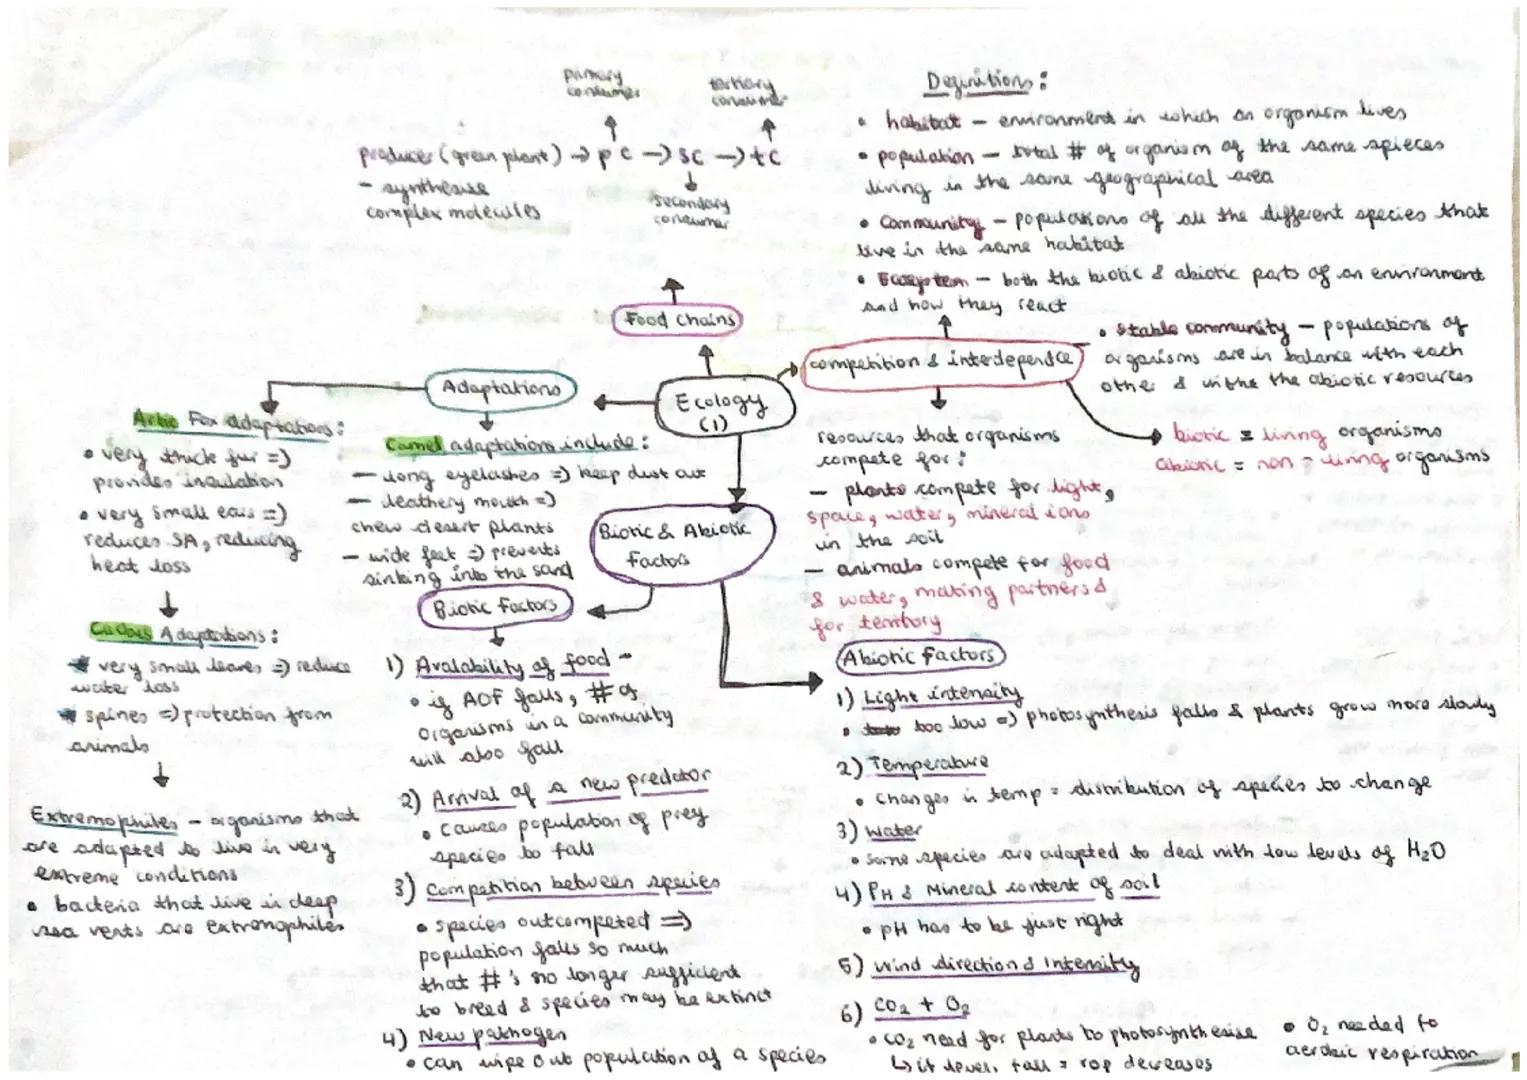 primary
consumer
tertiary
consumer
producer (green plant) → pc → sc → tc
- synthesise
complex molecules
secondary
consumer
Definitions:
• habitat - environment in which an organism lives
• population - total # of organism of the same spieces
living in the same geographical area
• Community - populations of all the different species that
live in the same habitat
• Ecosystem - both the biotic & abiotic parts of an environment
and how they react
• Stable community - populations of
organisms are in balance with each
other & withe the abiotic resources
Food chains
competition & interdepedce
Adaptations
Ecology
(1)
Artic Fox adaptations:
• very thick fur =)
provides insulation
• very small ears =)
reduces SA, reducing
heat loss
Camel adaptations include:
- long eyelashes =) keep dust out
- leathery mouth =)
chew desert plants
- wide feet =) prevents
sinking into the sand
Biotic & Abiotic
factors
resources that organisms
compete for:
- plants compete for light,
space, water, mineral ions
in the soil
- animals compete for food
& water, mating partners &
for territory
biotic = living organisms
abiotic = non-living organisms
Cactus Adaptations:
* very small leaves =) reduce
water loss
* spines =) protection from
animals
Extremophiles - organisms that
are adapted to live in very
extreme conditions
• bacteria that live in deep
sea vents are extremophiles
Biotic factors
1) Avalability of food -
• if AOF falls, # of
organisms in a community
will also fall
2) Arrival of a new predator
• causes population of prey
species to fall
3) Competition between species
• species outcompeted =)
population falls so much
that #'s no longer sufficient
to breed & species may be extinct
4) New pathogen
• can wipe out population of a species
Abiotic factors
1) Light intensity
• too low =) photosynthesis falls & plants grow more slowly
2) Temperature
• changes in temp = distribution of species to change
3) Water
• some species are adapted to deal with low levels of H₂O
4) PH & Mineral content of soil
• pH has to be just right
5) Wind direction & Intensity
6) CO₂ + O₂
• CO₂ need for plants to photosynthesise
↳ if levels fall = rop decreases
• O₂ needed fo
aerobic respiration